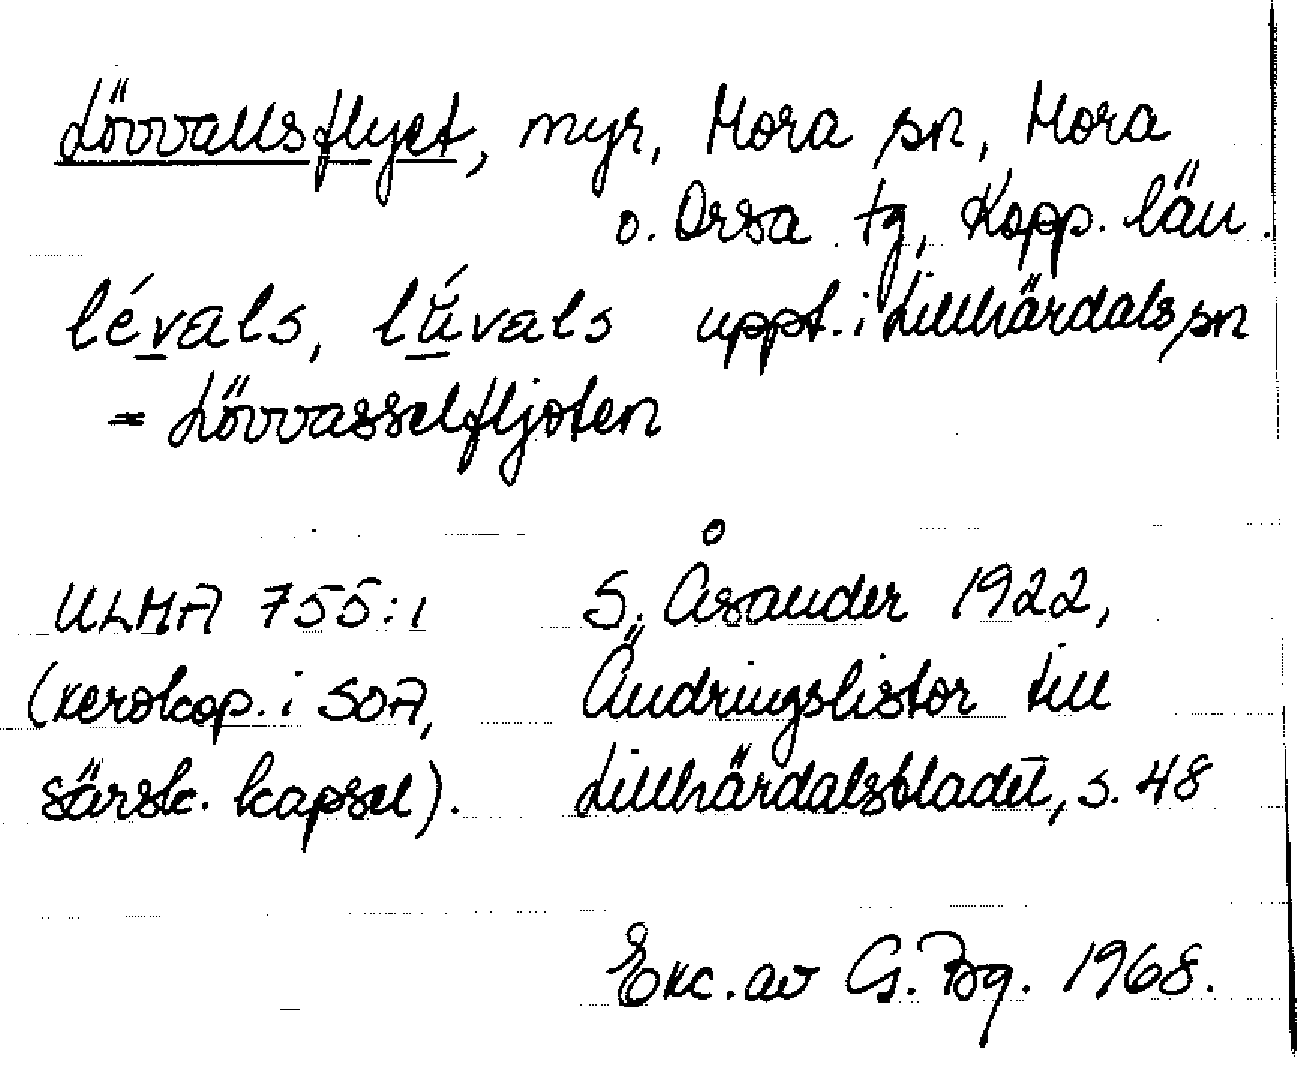 Lövvallsflyet, myr, Mora sn, Mora
o. Orsa tg, Kopp. län.
lévals, lu̇́vals uppt. i Lillhärdals sn
= Lövvasselfljoten
ULMA 755:1 S. Åsander 1922,
(xerokop. i SOA, Ändringslistor till
särsk. kapsel). Lillhärdalsbladet, s. 48
Exc. av G. Bg. 1968.